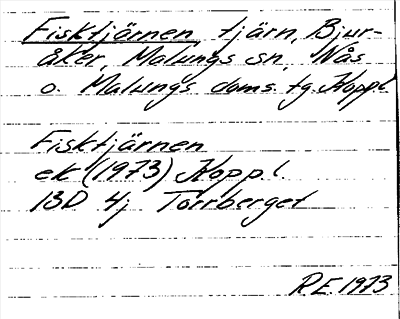 Fisktjärnen, tjärn, Bjur-
åker, Malungs sn, Nås
o. Malungs doms. tg. Koppl.
Fisktjärnen
ek (1973) Koppl.
13D 4j Torrberget
R.E. 1973